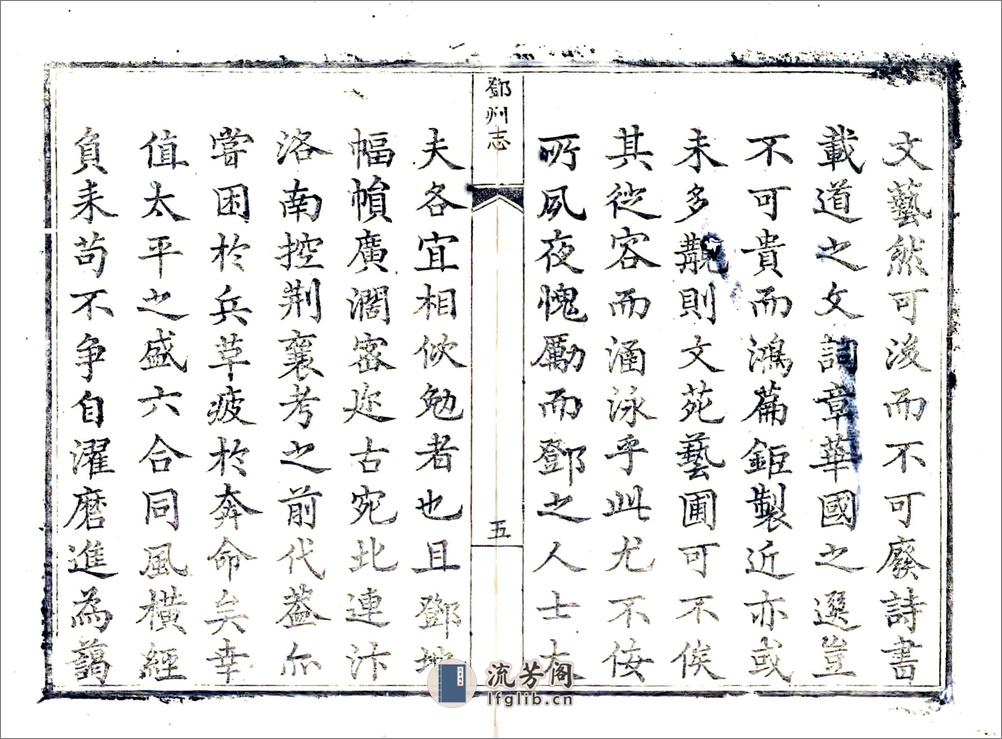 文藝然可後而不可廢詩書
載道之文詞章華國之選豈
不可貴而鴻篇鉅製近亦或
未多覯則文苑藝圃可不俟
其從容而涵泳乎此尤不佞
所夙夜愧勵而鄧之人士大
鄧州志
五
夫各宜相佽勉者也且鄧地
幅幀廣濶密迩古宛北連汴
洛南控荆襄考之前代葢亦
嘗困於兵革疲於奔命矣幸
值太平之盛六合同風橫經
負耒苟不争自濯磨進為藹
流芳阁
lfglib.cn